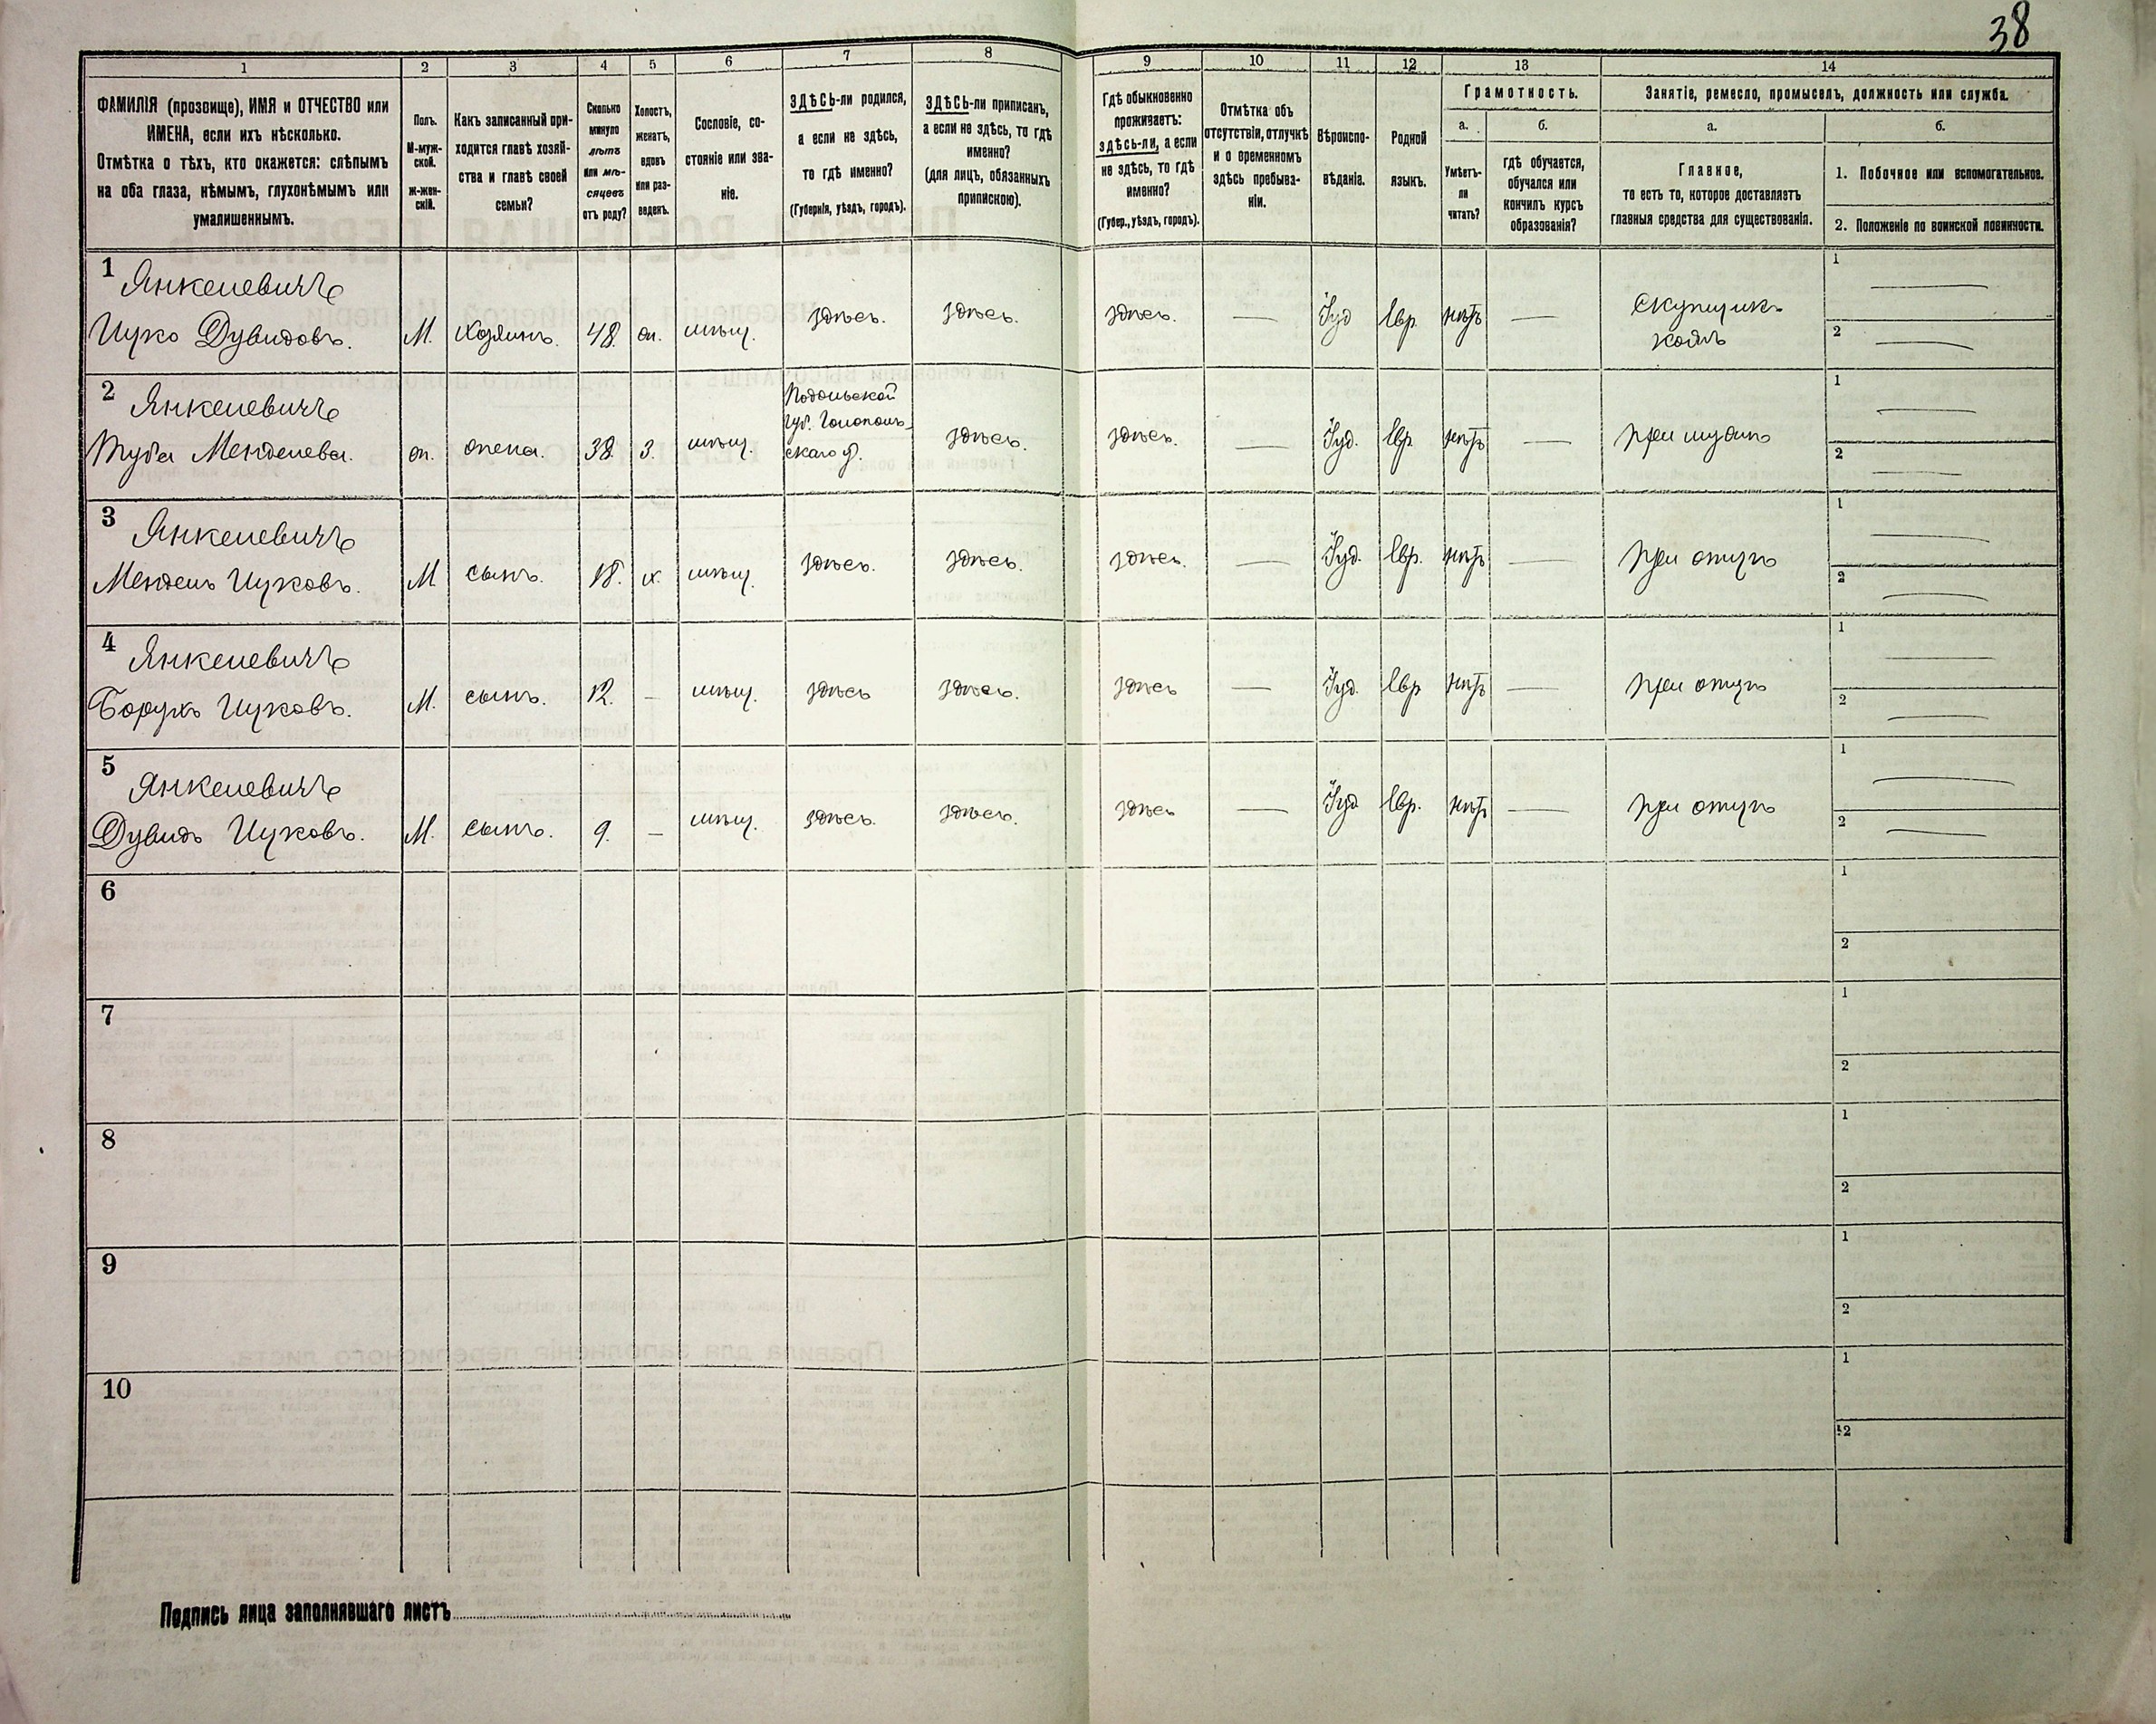 38
1 2 3 4 5 6 7 8 9 10 11 12 13 14
ФАМИЛІЯ (прозвище), ИМЯ и ОТЧЕСТВО или
ИМЕНА, если ихъ нѣсколько.
Отмѣтка о тѣхъ, кто окажется: слѣпымъ
на оба глаза, нѣмымъ, глухонѣмымъ или
умалишеннымъ.
Полъ.
М-муж-
ской.
ж-жен-
скій.
Какъ записанный при-
ходится главѣ хозяй-
ства и главѣ своей
семьи?
Сколько
минуло
лѣтъ
или мѣ-
сяцевъ
отъ роду?
Холостъ,
женатъ,
вдовъ
или раз-
веденъ.
Сословіе, со-
стояніе или зва-
ніе.
ЗДѢСЬ-ли родился,
а если не здѣсь,
то гдѣ именно?
(Губернія, уѣздъ, городъ).
ЗДѢСЬ-ли приписанъ,
а если не здѣсь, то гдѣ
именно?
(для лицъ, обязанныхъ
припискою).
Гдѣ обыкновенно
проживаетъ:
здѣсь-ли, а если
не здѣсь, то гдѣ
именно?
(Губер., уѣздъ, городъ).
Отмѣтка объ
отсутствіи, отлучкѣ
и о временномъ
здѣсь пребыва-
ніи.
Вѣроиспо-
вѣданіе.
Родной
языкъ.
Грамотность.
а.
Умѣетъ-
ли
читать?
б.
гдѣ обучается,
обучался или
кончилъ курсъ
образованія?
Занятіе, ремесло, промыселъ, должность или служба.
а.
Главное,
то есть то, которое доставляетъ
главныя средства для существованія.
б.
1. Побочное или вспомогательное.
2. Положеніе по воинской повинности.
1 Янкелевичъ
Ицко Дувидовъ. М. хозяинъ. 48. ж. мѣщ. здѣсь. здѣсь. здѣсь. — Іуд Евр. нѣтъ — Скупщикъ
кожъ
1 —
2 —
2 Янкелевичъ
Туба Менделева. ж. жена. 38. з. мѣщ.
Подольской
губ. Гайсин-
скаго у.
здѣсь. здѣсь. — Іуд. Евр. нѣтъ — при мужѣ
1 —
2 —
3 Янкелевичъ
Мендель Ицковъ. М сынъ. 18. х. мѣщ. здѣсь. здѣсь. здѣсь. — Іуд. Евр. нѣтъ — при отцѣ
1 —
2 —
4 Янкелевичъ
Борухъ Ицковъ. М. сынъ. 12. — мѣщ. здѣсь здѣсь. здѣсь — Іуд. Евр нѣтъ — при отцѣ
1 —
2 —
5 Янкелевичъ
Дувидъ Ицковъ. М. сынъ. 9. — мѣщ. здѣсь. здѣсь. здѣсь — Іуд Евр. нѣтъ — при отцѣ
1 —
2 —
6
1
2
7
1
2
8
1
2
9
1
2
10
1
2
Подпись лица заполнявшаго листъ